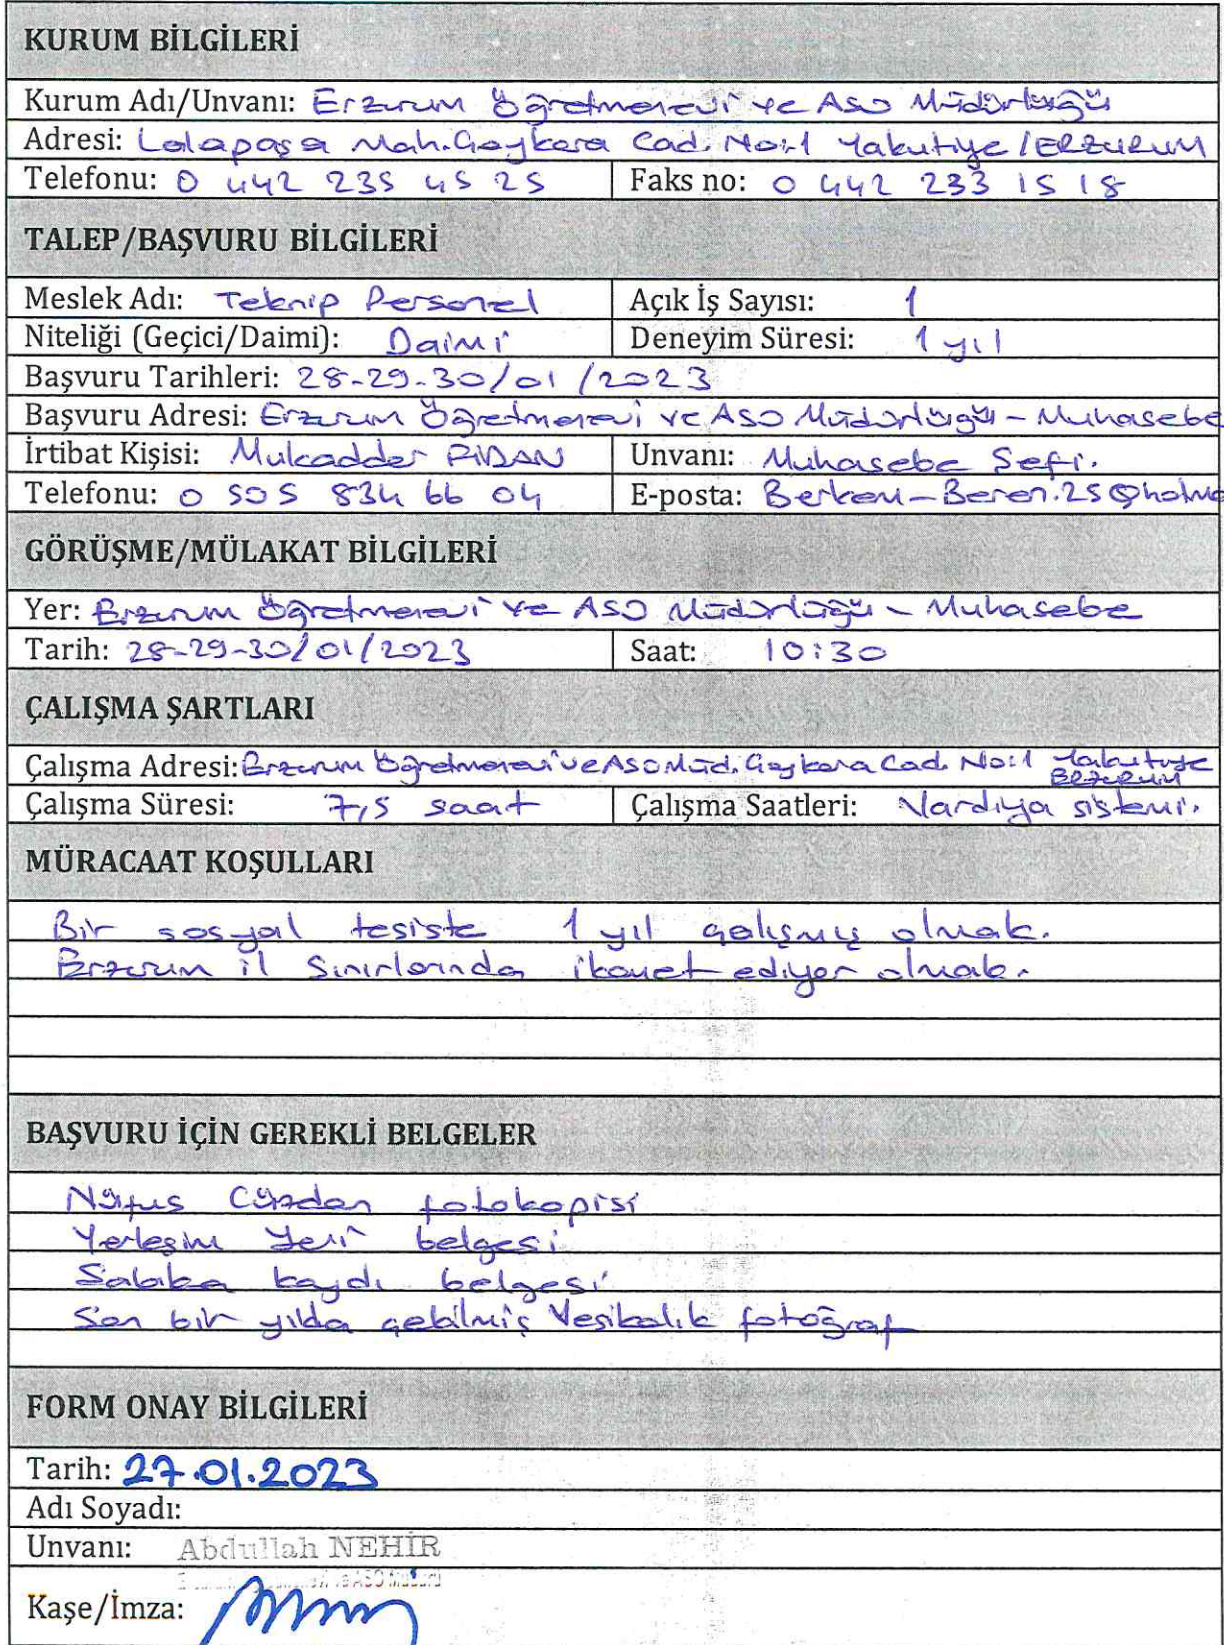 KURUM BİLGİLERİ
Kurum Adı/Unvanı: Erzurum Öğretmenevi ve ASO Müdürlüğü
Adresi: Lalapaşa Mah. Caykara Cad. No:1 Yakutiye / ERZURUM
Telefonu: 0 442 235 45 25 Faks no: 0 442 233 15 18
TALEP/BAŞVURU BİLGİLERİ
Meslek Adı: Teknip Personel Açık İş Sayısı: 1
Niteliği (Geçici/Daimi): Daimi Deneyim Süresi: 1 yıl
Başvuru Tarihleri: 28-29-30/01/2023
Başvuru Adresi: Erzurum Öğretmenevi ve ASO Müdürlüğü - Muhasebe
İrtibat Kişisi: Mukadder FİDAN Unvanı: Muhasebe Şefi.
Telefonu: 0 505 834 66 04 E-posta: Berkem-Beren.25@hotma
GÖRÜŞME/MÜLAKAT BİLGİLERİ
Yer: Erzurum Öğretmenevi ve ASO Müdürlüğü - Muhasebe
Tarih: 28-29-30/01/2023 Saat: 10:30
ÇALIŞMA ŞARTLARI
Çalışma Adresi: Erzurum Öğretmenevi ve ASO Müd. Caykara Cad. No:1 Yakutiye
ERZURUM
Çalışma Süresi: 7,5 saat Çalışma Saatleri: Vardiya sistemi.
MÜRACAAT KOŞULLARI
Bir sosyal tesiste 1 yıl çalışmış olmak.
Erzurum il Sınırlarında ikamet ediyor olmak.
BAŞVURU İÇİN GEREKLİ BELGELER
Nüfus Cüzdan fotokopisi
Yerleşim Yeri belgesi
Sabıka kaydı belgesi
Son bir yılda çekilmiş Vesikalık fotoğraf
FORM ONAY BİLGİLERİ
Tarih: 27.01.2023
Adı Soyadı:
Unvanı: Abdullah NEHİR
ve ASO Müdürü
Kaşe/İmza: